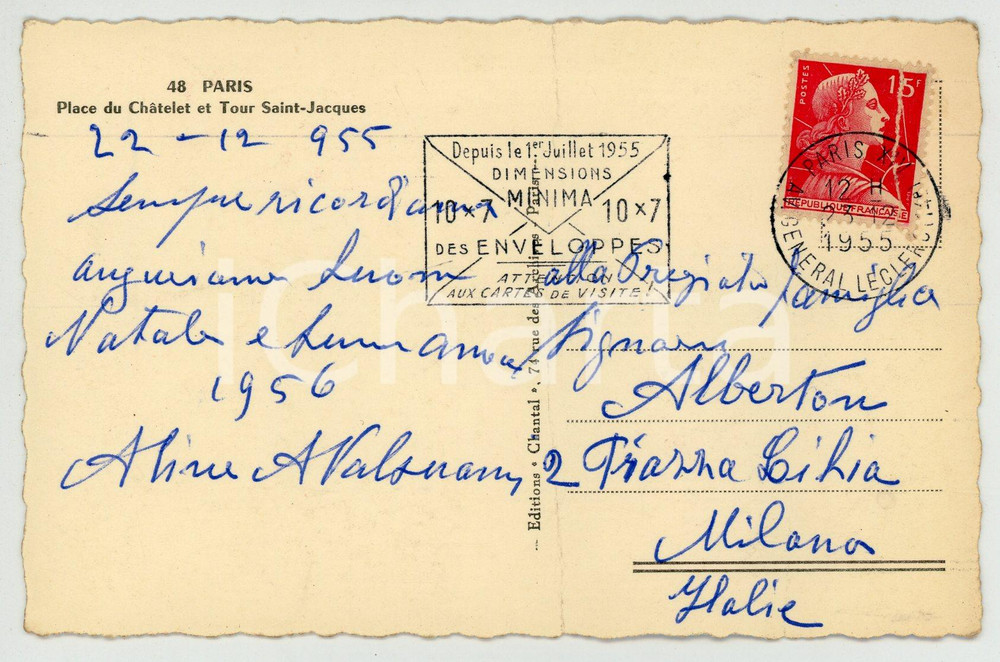 48 PARIS
Place du Châtelet et Tour Saint-Jacques
22-12 955
Sempre ricordiamo
auguriamo buon
Natale e buon anno
1956
Aline
Depuis le 1er Juillet 1955
DIMENSIONS
MINIMA
10 x 7 10 x 7
DES ENVELOPPES
ATTENTION
AUX CARTES DE VISITE !
POSTES
15F
REPUBLIQUE FRANCAISE
PARIS X
12 H
23-12
1955
AV. GENERAL LECLERC
alla Pregiata famiglia
Signori
Alberton
2 Piazza Lihia
Milano
Italie
Editions « Chantal », 74 rue des Archives - Paris
iCharta